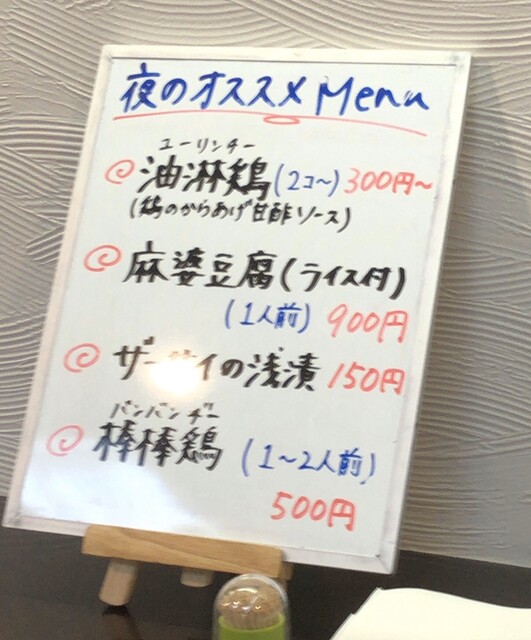 夜のオススメMenu
ユーリンチー
油淋鶏(2コ〜)300円〜
(鶏のからあげ甘酢ソース)
麻婆豆腐(ライス付)
(1人前)900円
ザーサイの浅漬150円
バンバンヂー
棒棒鶏(1〜2人前)
500円